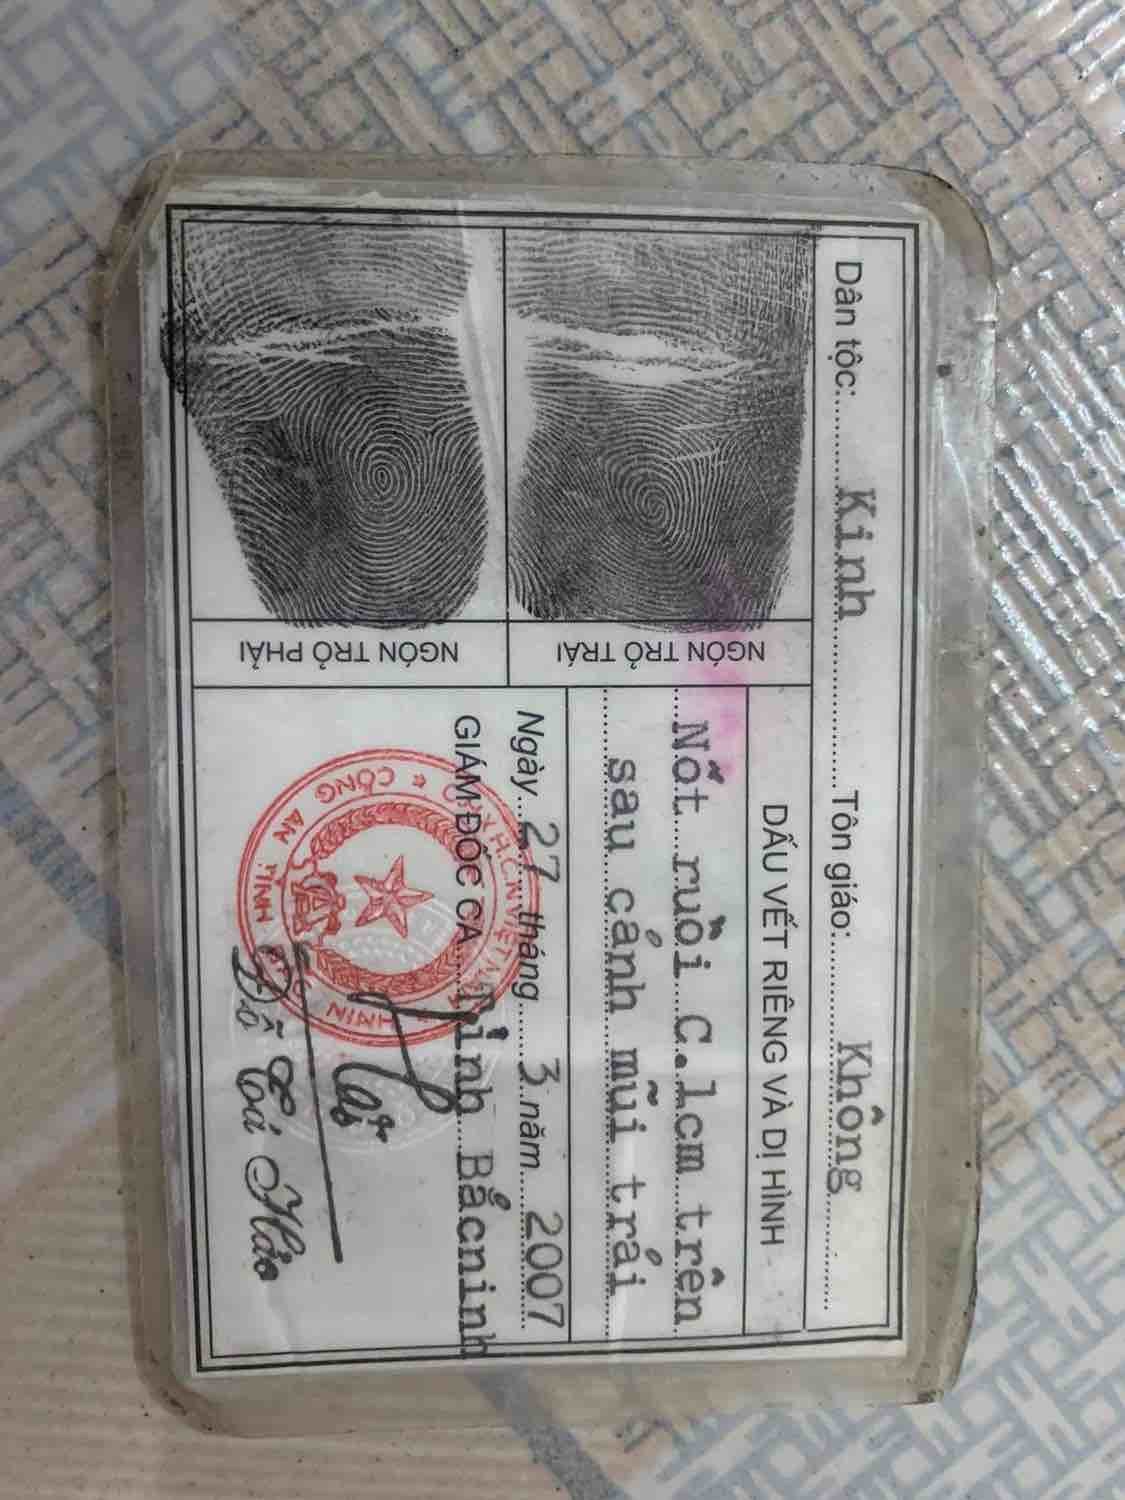 Dân tộc: Kinh Tôn giáo: Không
NGÓN TRỎ TRÁI
NGÓN TRỎ PHẢI
DẤU VẾT RIÊNG VÀ DỊ HÌNH
Nốt ruồi C.1cm trên
sau cánh mũi trái
Ngày 27 tháng 3 năm 2007
GIÁM ĐỐC CA Tỉnh Bắcninh
CÔNG AN TỈNH